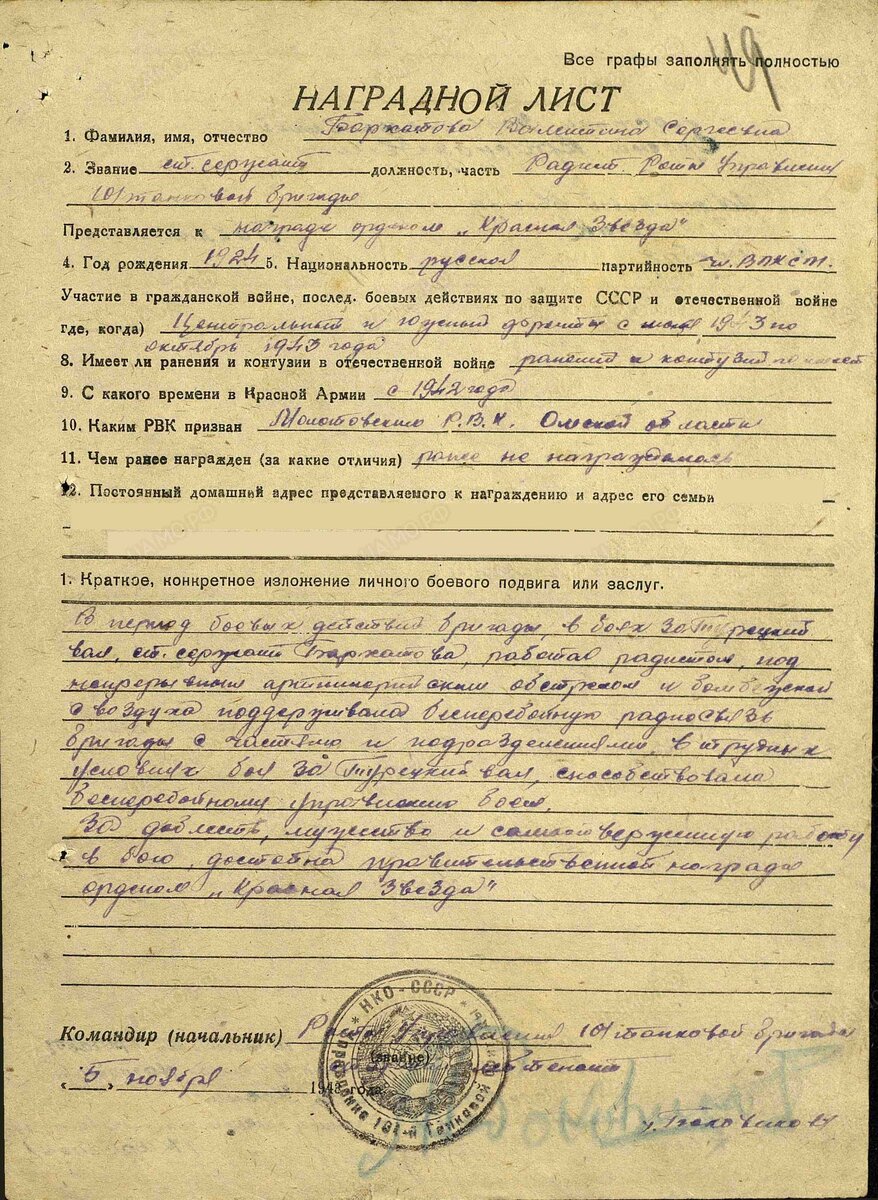 49
Все графы заполнять полностью
НАГРАДНОЙ ЛИСТ
1. Фамилия, имя, отчество Бархатова Валентина Сергеевна
2. Звание ст. сержант должность, часть Радист Роты Управления
101 танковой бригады
Представляется к награде орденом „Красная Звезда"
4. Год рождения 1924 5. Национальность русская партийность чл. ВЛКСМ.
Участие в гражданской войне, послед. боевых действиях по защите СССР и отечественной войне
где, когда) Центральный и южный фронты с мая 1943 по
октябрь 1943 года
8. Имеет ли ранения и контузии в отечественной войне ранений и контузий не имеет
9. С какого времени в Красной Армии с 1942 года
10. Каким РВК призван Молотовским Р.В.К. Омской области
11. Чем ранее награжден (за какие отличия) ранее не награждалась
12. Постоянный домашний адрес представляемого к награждению и адрес его семьи
1. Краткое, конкретное изложение личного боевого подвига или заслуг.
В период боевых действий бригады, в боях за Турецкий
вал, ст. сержант Бархатова, работая радистом, под
непрерывным артиллерийским обстрелом и бомбежкой
с воздуха поддерживала бесперебойную радиосвязь
бригады с частями и подразделениями, в трудных
условиях боя за Турецкий вал, способствовала
бесперебойному управлению боем.
За доблесть, мужество и самоотверженную работу
в бою, достойна правительственной награды
орденом „Красная Звезда"
НКО-СССР
Управление 101-й Танковой
Командир (начальник) Роты Управления 101 танковой бригады
(звание) лейтенант
„5" ноября 1943 года